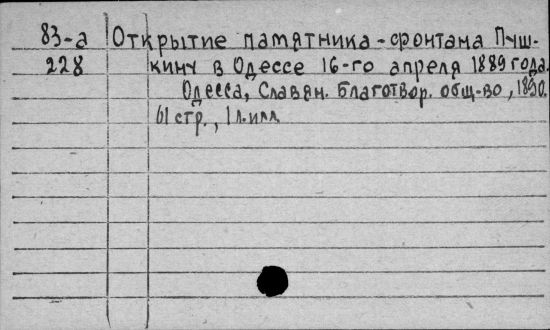 83-а Открытие памятника-фонтана Пуш-
228 кину в Одессе 16-го апреля 1889 года.
Одесса, Славян. благотвор. общ-во, 1890.
61 стр., 1 л. илл.